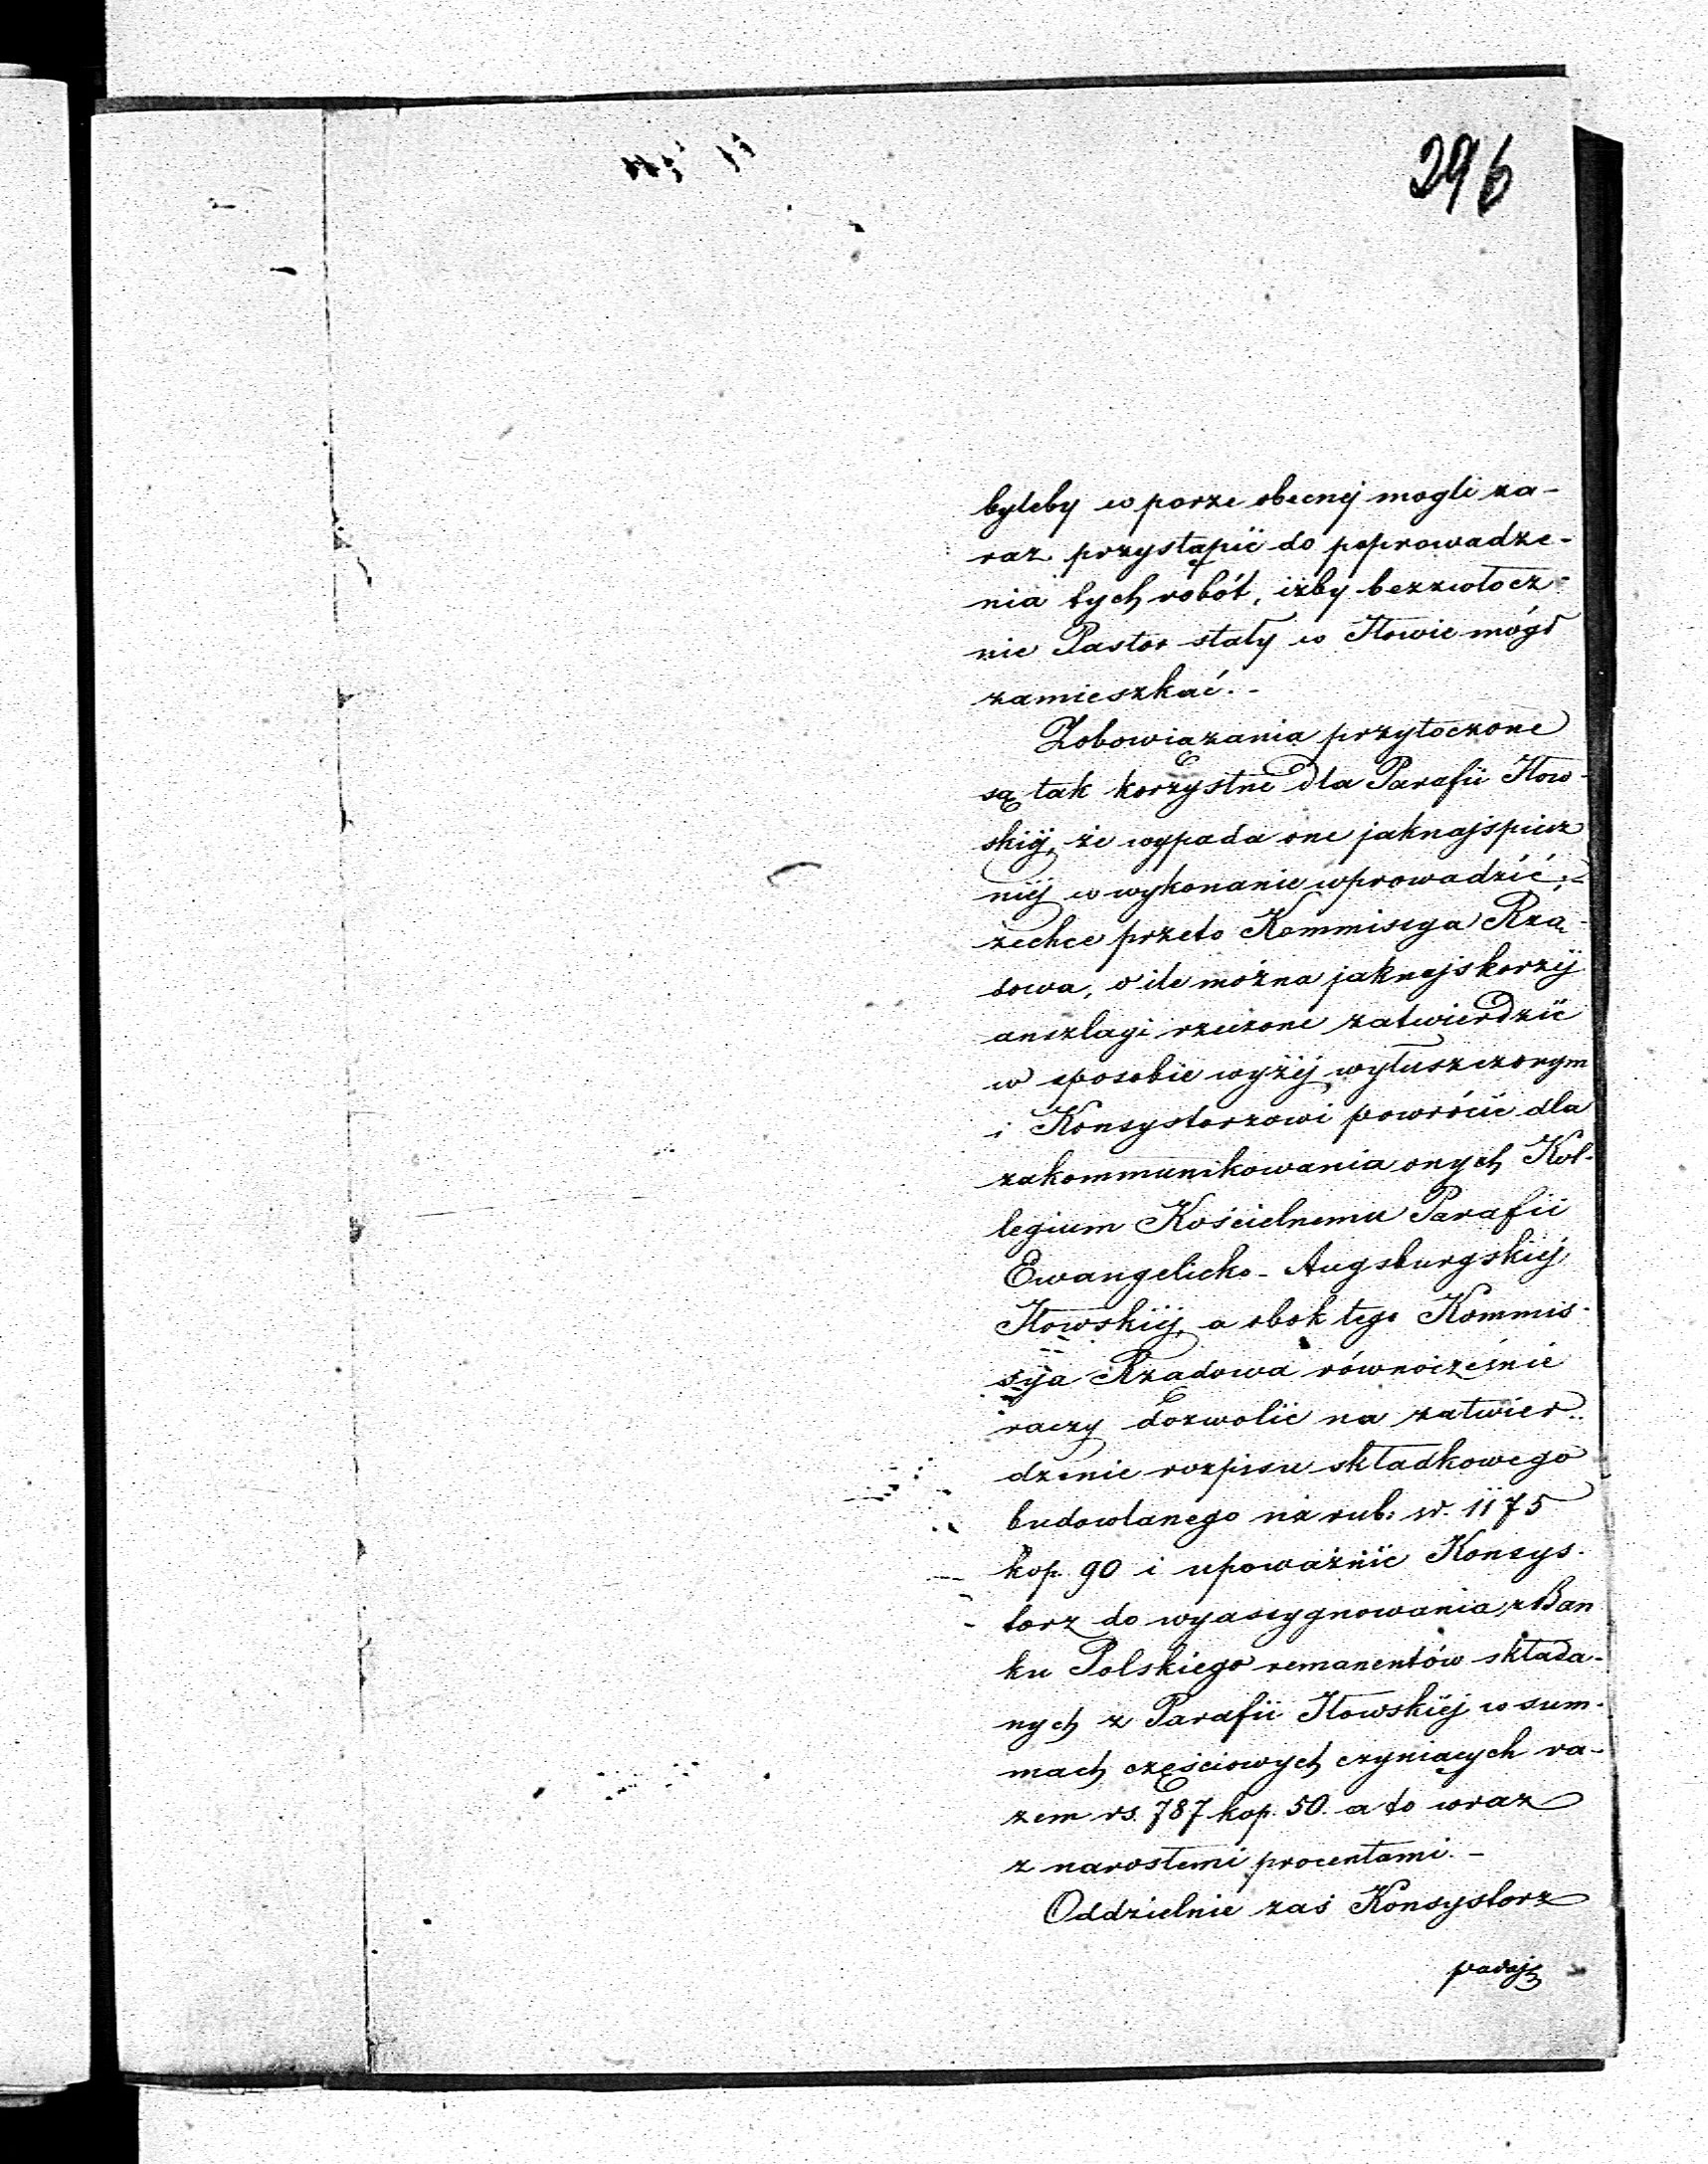 296
byleby w porze obecnej mogli za-
raz przystąpić do poprowadze-
nia tych robót, iżby bezzwłocz-
nie Pastor stały w Iłowie mógł
zamieszkać.-
Zobowiązania przytoczone
są tak korzystne dla Parafii Iłow-
skiéj, że wypada one jaknajspiesz
niéj w wykonanie wprowadzić;-
zechce przeto Kommissya Rzą-
dowa, o ile można jaknajskorzéj
anszlagi rzeczone zatwierdzić
w sposobie wyżéj wyłuszczonym
i Konsystorzowi powrócić dla
zakommunikowania onych Kol-
legium Kościelnemu Parafii
Ewangelicko-Augsburgskiéj
Iłowskiéj, a obok tego Kommis-
sya Rządowa równocześnie
raczy dozwolić na zatwier-
dzenie rozpisu składkowego
budowlanego na rub. sr. 1175
kop. 90 i upoważnić Konsys-
torz do wyassygnowania z Ban
ku Polskiego remanentów składa-
nych z Parafii Iłowskiéj w sum-
mach częściowych czyniących ra-
zem rs. 787 kop. 50. a to wraz
z narosłemi procentami.-
Oddzielnie zaś Konsystorz